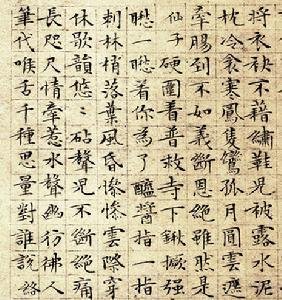 將衣袂不藉繡鞋兒被露水泥
枕冷衾寒鳳隻鸞孤月圓雲遮
牽腸到不如義斷恩絕雖然是
仙子硬圍着普救寺下鍬撅强
一着你為了醯醬指一指
刺林梢落葉風昏慘慘雲際穿
休歇韻悠〻砧聲兒不斷絕痛
長咫尺情牽惹水聲幽彷彿人
筆代喉舌千種思量對誰說 絡